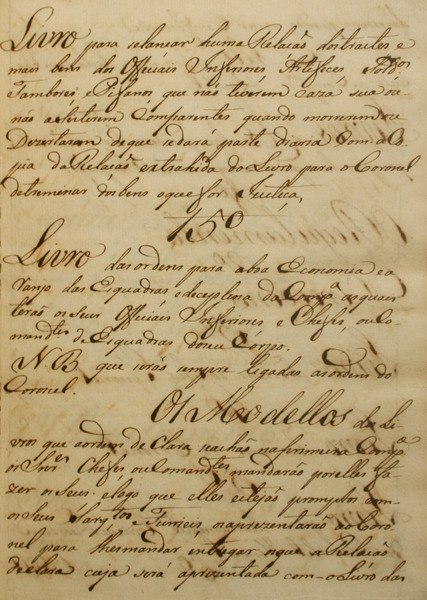 Livro para se lansar huma Relasaõ dos trastes e
mais bens dos Officiáis Inferióres Artefices Sold.os
Tambores e Pifanos que naõ tiverem caza sua ou
naõ tiverem Comparentes quando morrerem ou
Dezertarem de que se dará parte diaria Com a Co
pia da Relasaõ extrahida do Livro para o Coronel
detreminar dos bens o que for Justica,
15º
Livro das ordens para a boa Economia e a
ranjo das Esquadras e deceplina da Comp.a as quaes
teraõ os seus Officiáis Inferiores e Chefes, ou Co
mand.tes de Esquadras do seu Corpo.
N.B. que seraõ sempre ligadas as ordens do
Coronel.
Os Modellos dos Li
vros que a ordem de Clara se achaõ na primeira Comp.a
os Snr.es Chefes ou Comand.tes mandaráõ por elles fa
zer os seus. e logo que elles estejaõ promptos com
os seus Sarg.tos e Furrieis os aprezentaráõ ao Coro
nel para lhes mandar entregar o que a Relasaõ
declara cuja será aprezentada com o Livro das